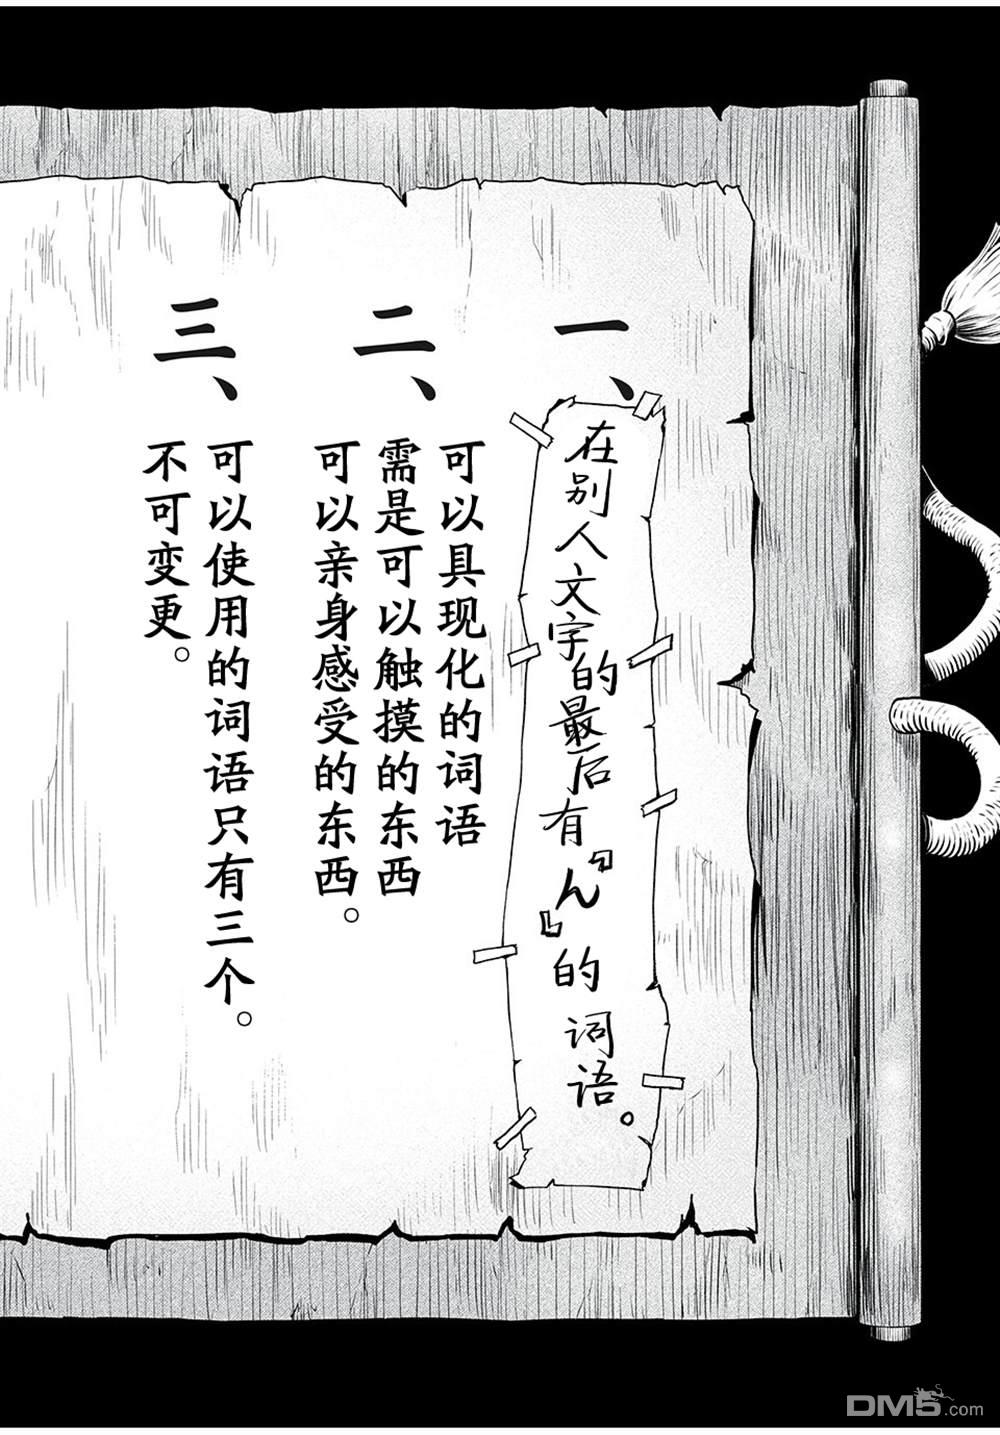 一、
在别人文字的最后有『ん』的词语。
二、
可以具现化的词语
需是可以触摸的东西
可以亲身感受的东西。
三、
可以使用的词语只有三个。
不可变更。
DM5.com